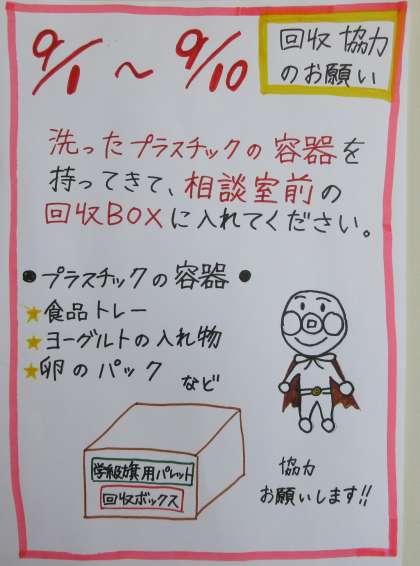 9/1 ～ 9/10
回収協力
のお願い
洗ったプラスチックの容器を
持ってきて、相談室前の
回収BOXに入れてください。
●プラスチックの容器●
★食品トレー
★ヨーグルトの入れ物
★卵のパック など
学級旗用パレット
回収ボックス
協力
お願いします!!